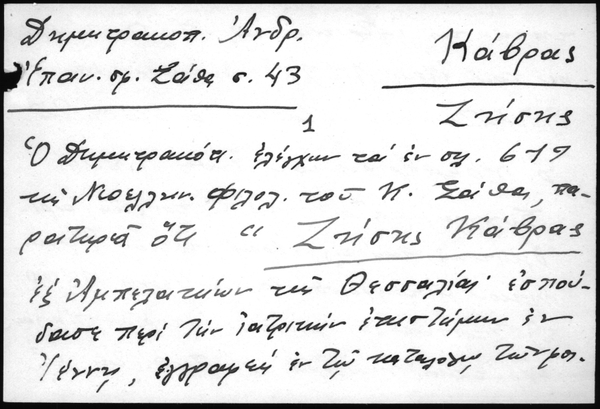 Δημητρακοπ. Ἀνδρ.
Ἐπαν. σφ. Σάθα σ. 43
Κάβρας
Ζήσης
1
Ὁ Δημητρακόπ. ἐλέγχων τά ἐν σελ. 619
τῆς Νεοελλην. Φιλολ. τοῦ Κ. Σάθα, πα-
ρατηρεῖ ὅτι " Ζήσης Κάβρας
ἐξ Ἀμπελακίων τῆς Θεσσαλίας ἐσπού-
δασε περί τήν ἰατρικήν ἐπιστήμην ἐν
Ἰέννῃ, ἐγγραφείς ἐν τῷ καταλόγῳ τῶν